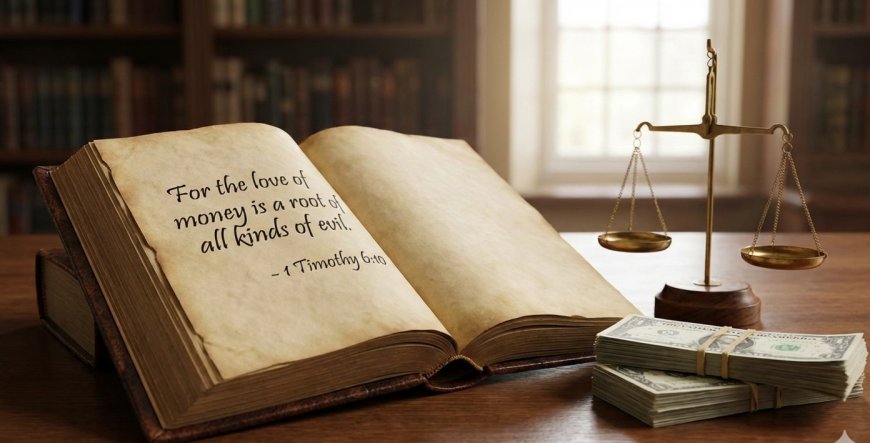 For the love of
money is a root of
all kinds of evil.
- 1 Timothy 6:10